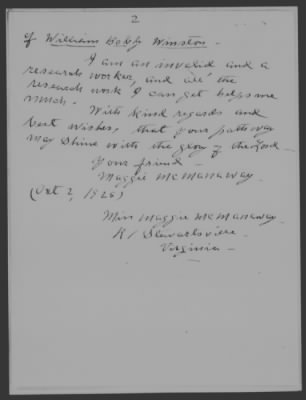 2
of William Bobby Winston -
I am an invalid and a
research worker, and all the
research work I can get helps me
much. With kind regards and
best wishes, that your pathway
may shine with the glory of the Lord -
Your friend -
Maggie McManaway.
(Oct 2, 1926)
Miss Maggie McManaway
R 1 Stewartsville -
Virginia -